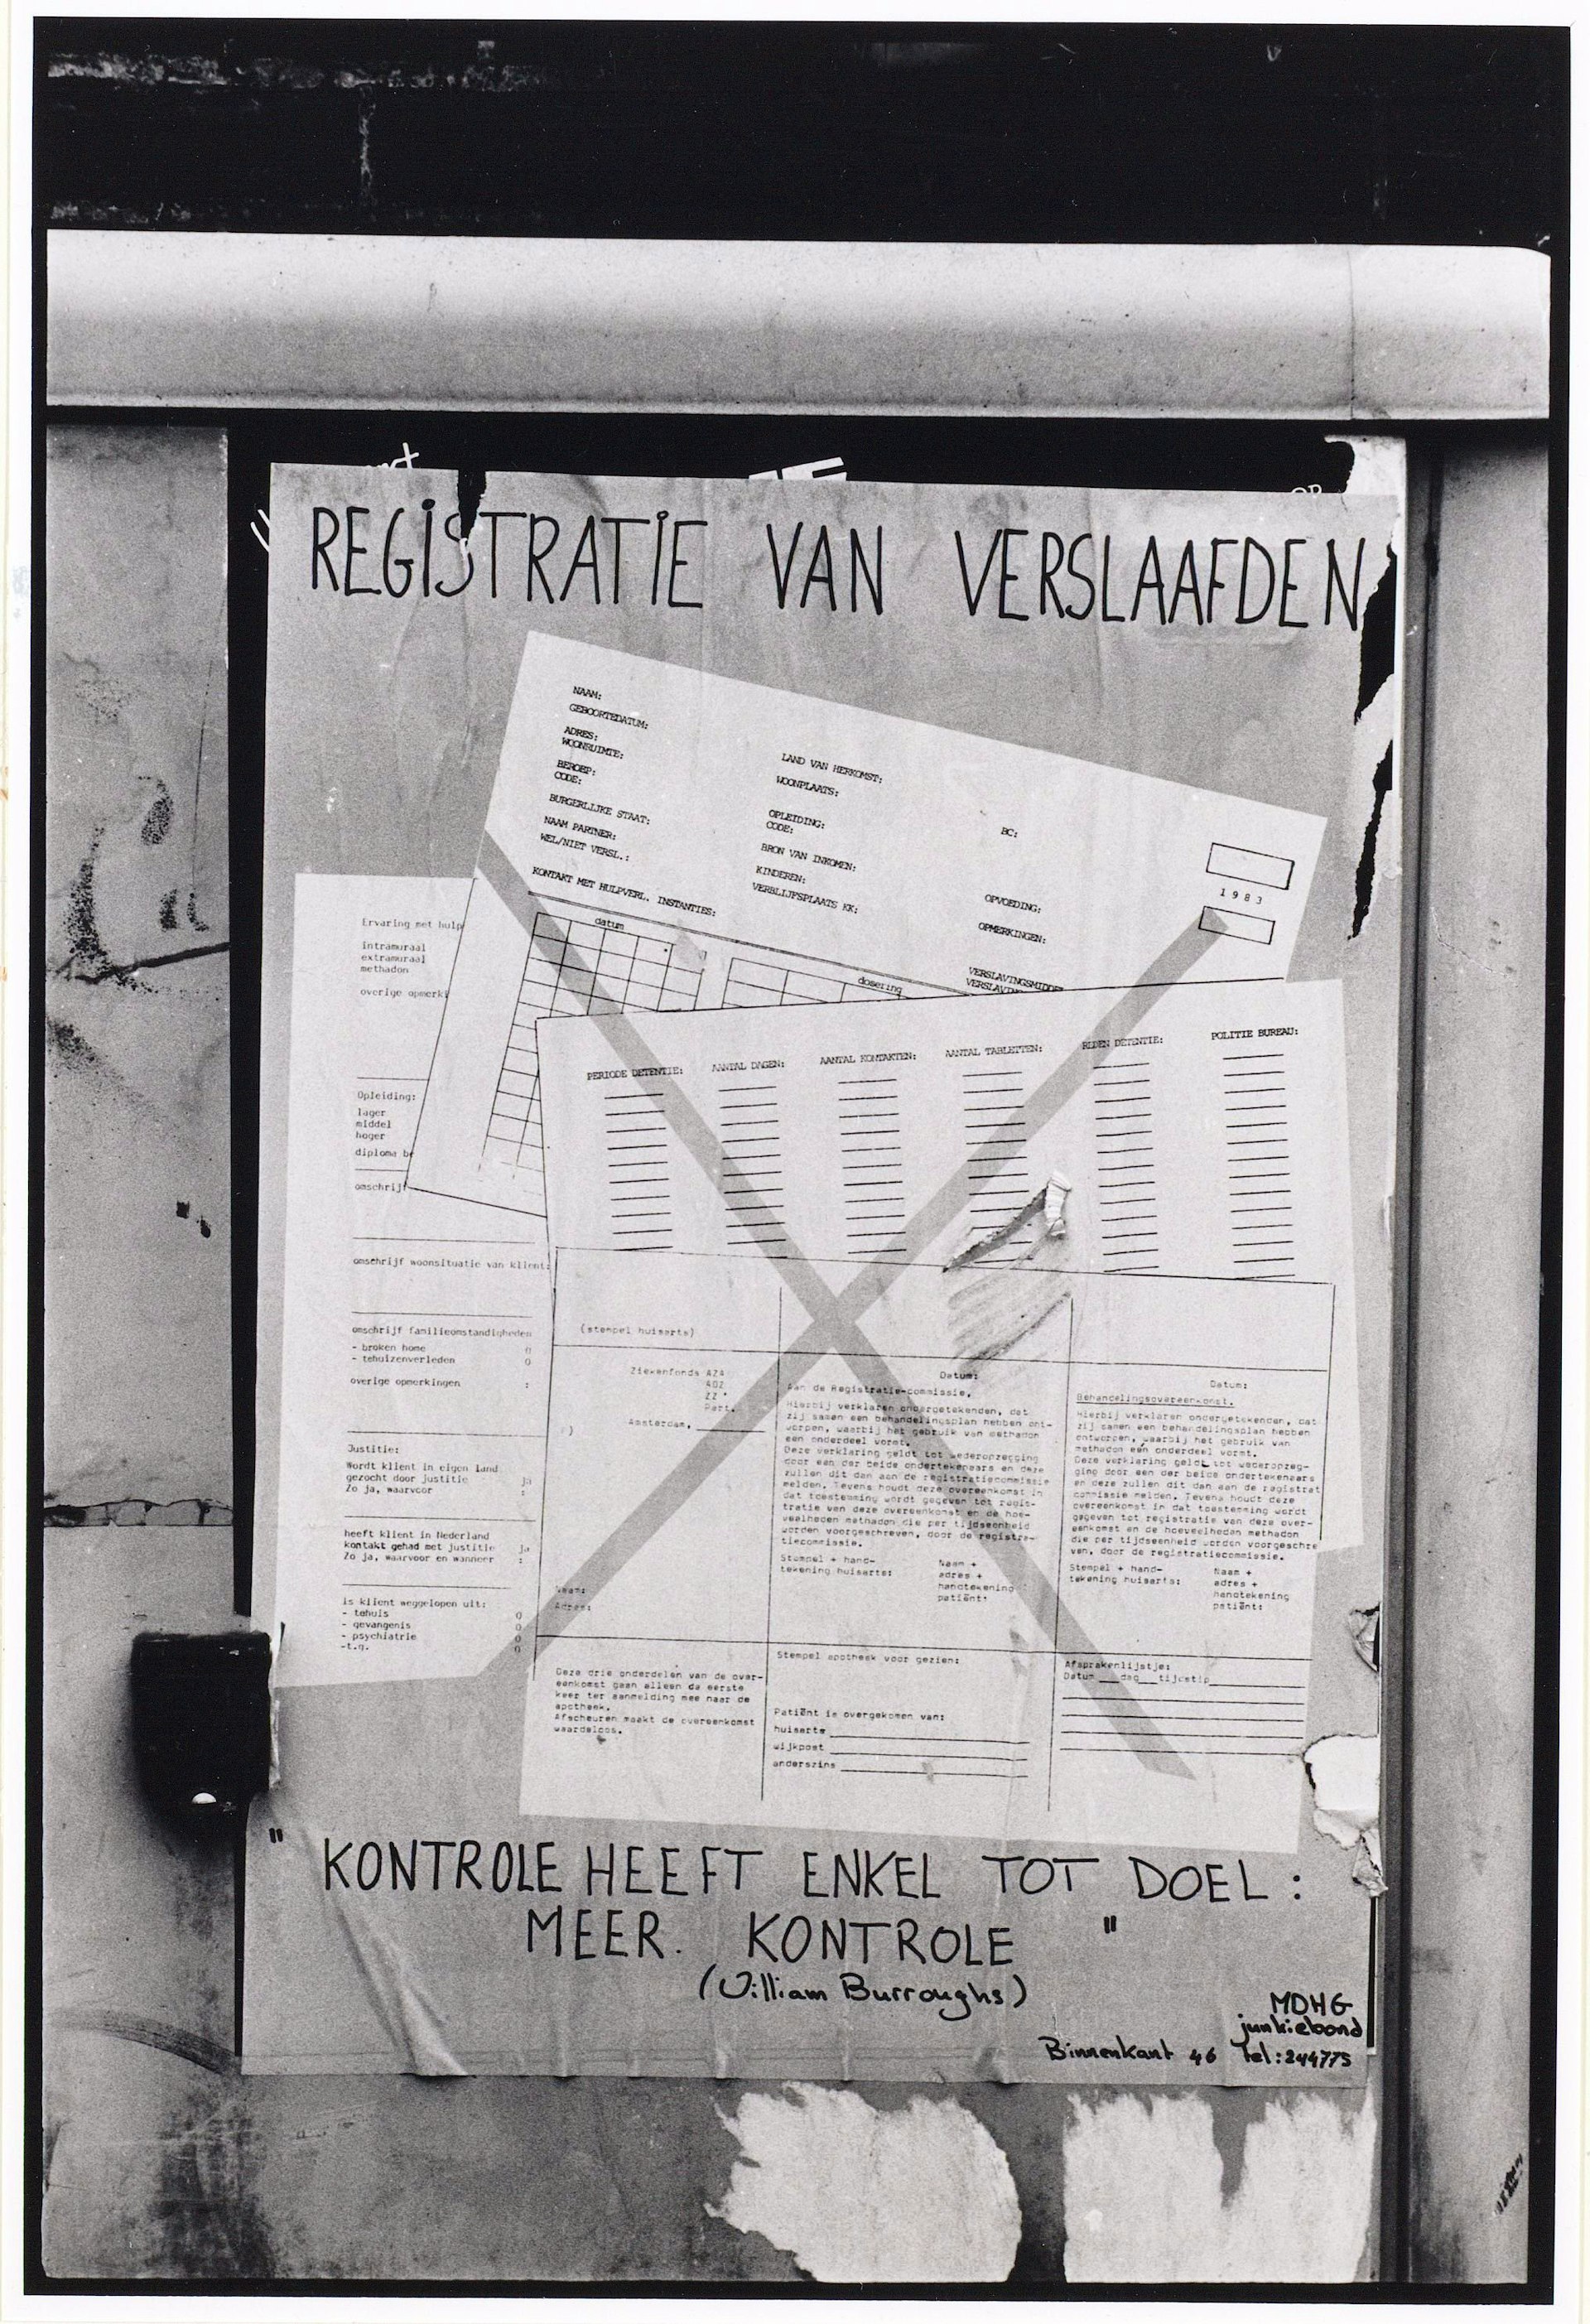 REGISTRATIE VAN VERSLAAFDEN
NAAM:
GEBOORTEDATUM:
ADRES:
WOONRUIMTE:
BEROEP:
CODE:
BURGERLIJKE STAAT:
NAAM PARTNER:
WEL/NIET VERSL.:
KONTAKT MET HULPVERL. INSTANTIES:
LAND VAN HERKOMST:
WOONPLAATS:
OPLEIDING:
CODE:
BRON VAN INKOMEN:
KINDEREN:
VERBLIJFSPLAATS KK:
BC:
OPVOEDING:
OPMERKINGEN:
1983
datum
dosering
Ervaring met hulp
intramuraal
extramuraal
methadon
overige opmerki
Opleiding:
lager
middel
hoger
diploma be
omschrijf
omschrijf woonsituatie van klient:
omschrijf familieomstandigheden
- broken home 0
- tehuizenverleden 0
overige opmerkingen :
Justitie:
Wordt klient in eigen land
gezocht door justitie ja
Zo ja, waarvoor :
heeft klient in Nederland
kontakt gehad met justitie ja
Zo ja, waarvoor en wanneer :
is klient weggelopen uit:
- tehuis 0
- gevangenis 0
- psychiatrie 0
-t.g. 0
PERIODE DETENTIE: AANTAL DAGEN: AANTAL KONTAKTEN: AANTAL TABLETTEN: REDEN DETENTIE: POLITIE BUREAU:
(stempel huisarts)
Ziekenfonds AZA
AOZ
ZZ
Part.
Amsterdam,
Naam:
Adres:
Datum:
Aan de Registratie-commissie.
Hierbij verklaren ondergetekenden, dat
zij samen een behandelingsplan hebben ont-
worpen, waarbij het gebruik van methadon
een onderdeel vormt.
Deze verklaring geldt tot wederopzegging
door een der beide ondertekenaars en deze
zullen dit dan aan de registratiecommissie
melden. Tevens houdt deze overeenkomst in
dat toestemming wordt gegeven tot regis-
tratie van deze overeenkomst en de hoe-
veelheden methadon die per tijdseenheid
worden voorgeschreven, door de registra-
tiecommissie.
Stempel + hand-
tekening huisarts:
Naam +
adres +
handtekening
patiënt:
Datum:
Behandelingsovereenkomst.
Hierbij verklaren ondergetekenden, dat
zij samen een behandelingsplan hebben
ontworpen, waarbij het gebruik van
methadon een onderdeel vormt.
Deze verklaring geldt tot wederopzeg-
ging door een der beide ondertekenaars
en deze zullen dit dan aan de registrat
commissie melden. Tevens houdt deze
overeenkomst in dat toestemming wordt
gegeven tot registratie van deze over-
eenkomst en de hoeveelheden methadon
die per tijdseenheid worden voorgeschre
ven, door de registratiecommissie.
Stempel + hand-
tekening huisarts:
Naam +
adres +
handtekening
patiënt:
Deze drie onderdelen van de over-
eenkomst gaan alleen de eerste
keer ter aanmelding mee naar de
apotheek.
Afscheuren maakt de overeenkomst
waardeloos.
Stempel apotheek voor gezien:
Patiënt is overgekomen van:
huisarts
wijkpost
anderszins
Afsprakenlijstje:
Datum dag tijdstip
" KONTROLE HEEFT ENKEL TOT DOEL :
MEER. KONTROLE "
(William Burroughs)
MDHG
junkiebond
Binnenkant 46 Tel:244775